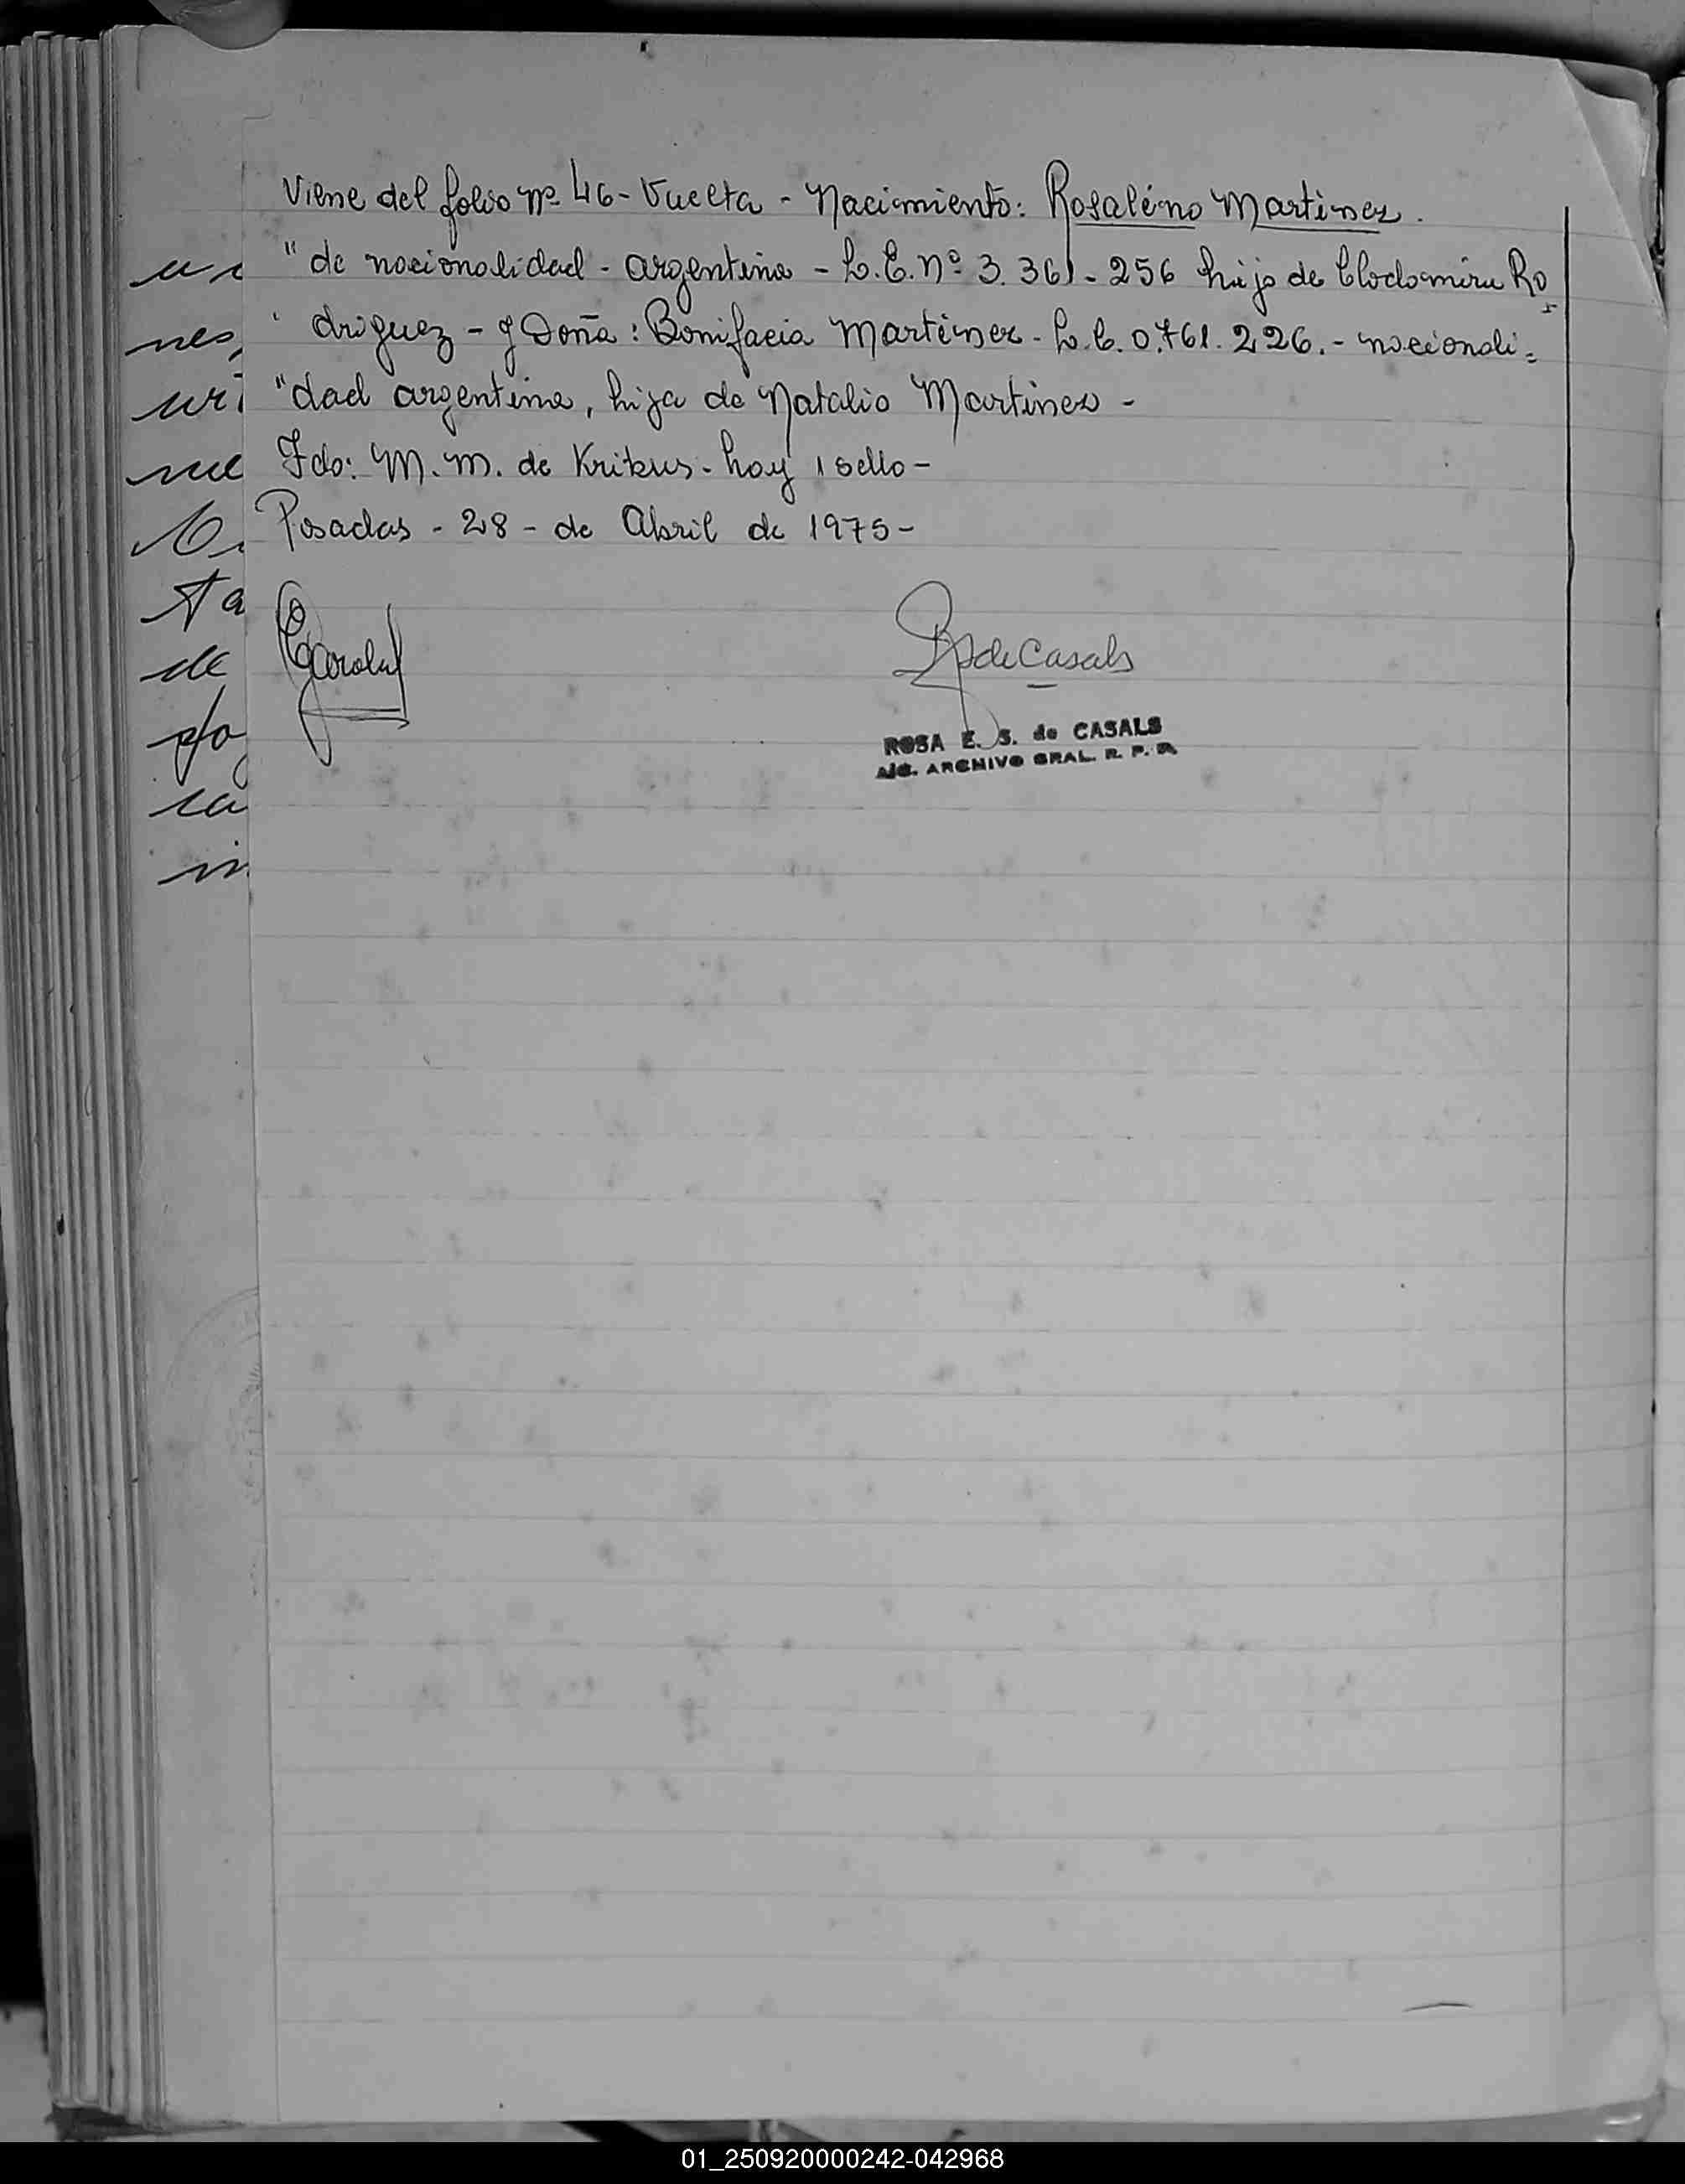 Viene del folio nº 46 - Vuelta - Nacimiento: Rosalino Martinez.
"de nacionalidad - argentina - L.E. nº 3.361-256 hijo de Clodomiru Ro
' driguez - y Doña: Bonifacia Martinez - L.C. 0.761.226.- nacionali=
"dad argentina, hija de Natalio Martinez -
Fdo: M. M. de Krikus - hay 1 sello -
Posadas - 28 - de Abril de 1975 -
de Casals
ROSA E. S. de CASALS
ARCHIVO GRAL. R. P.
nes,
uri
nue
ta
de
ca
in
01_250920000242-042968